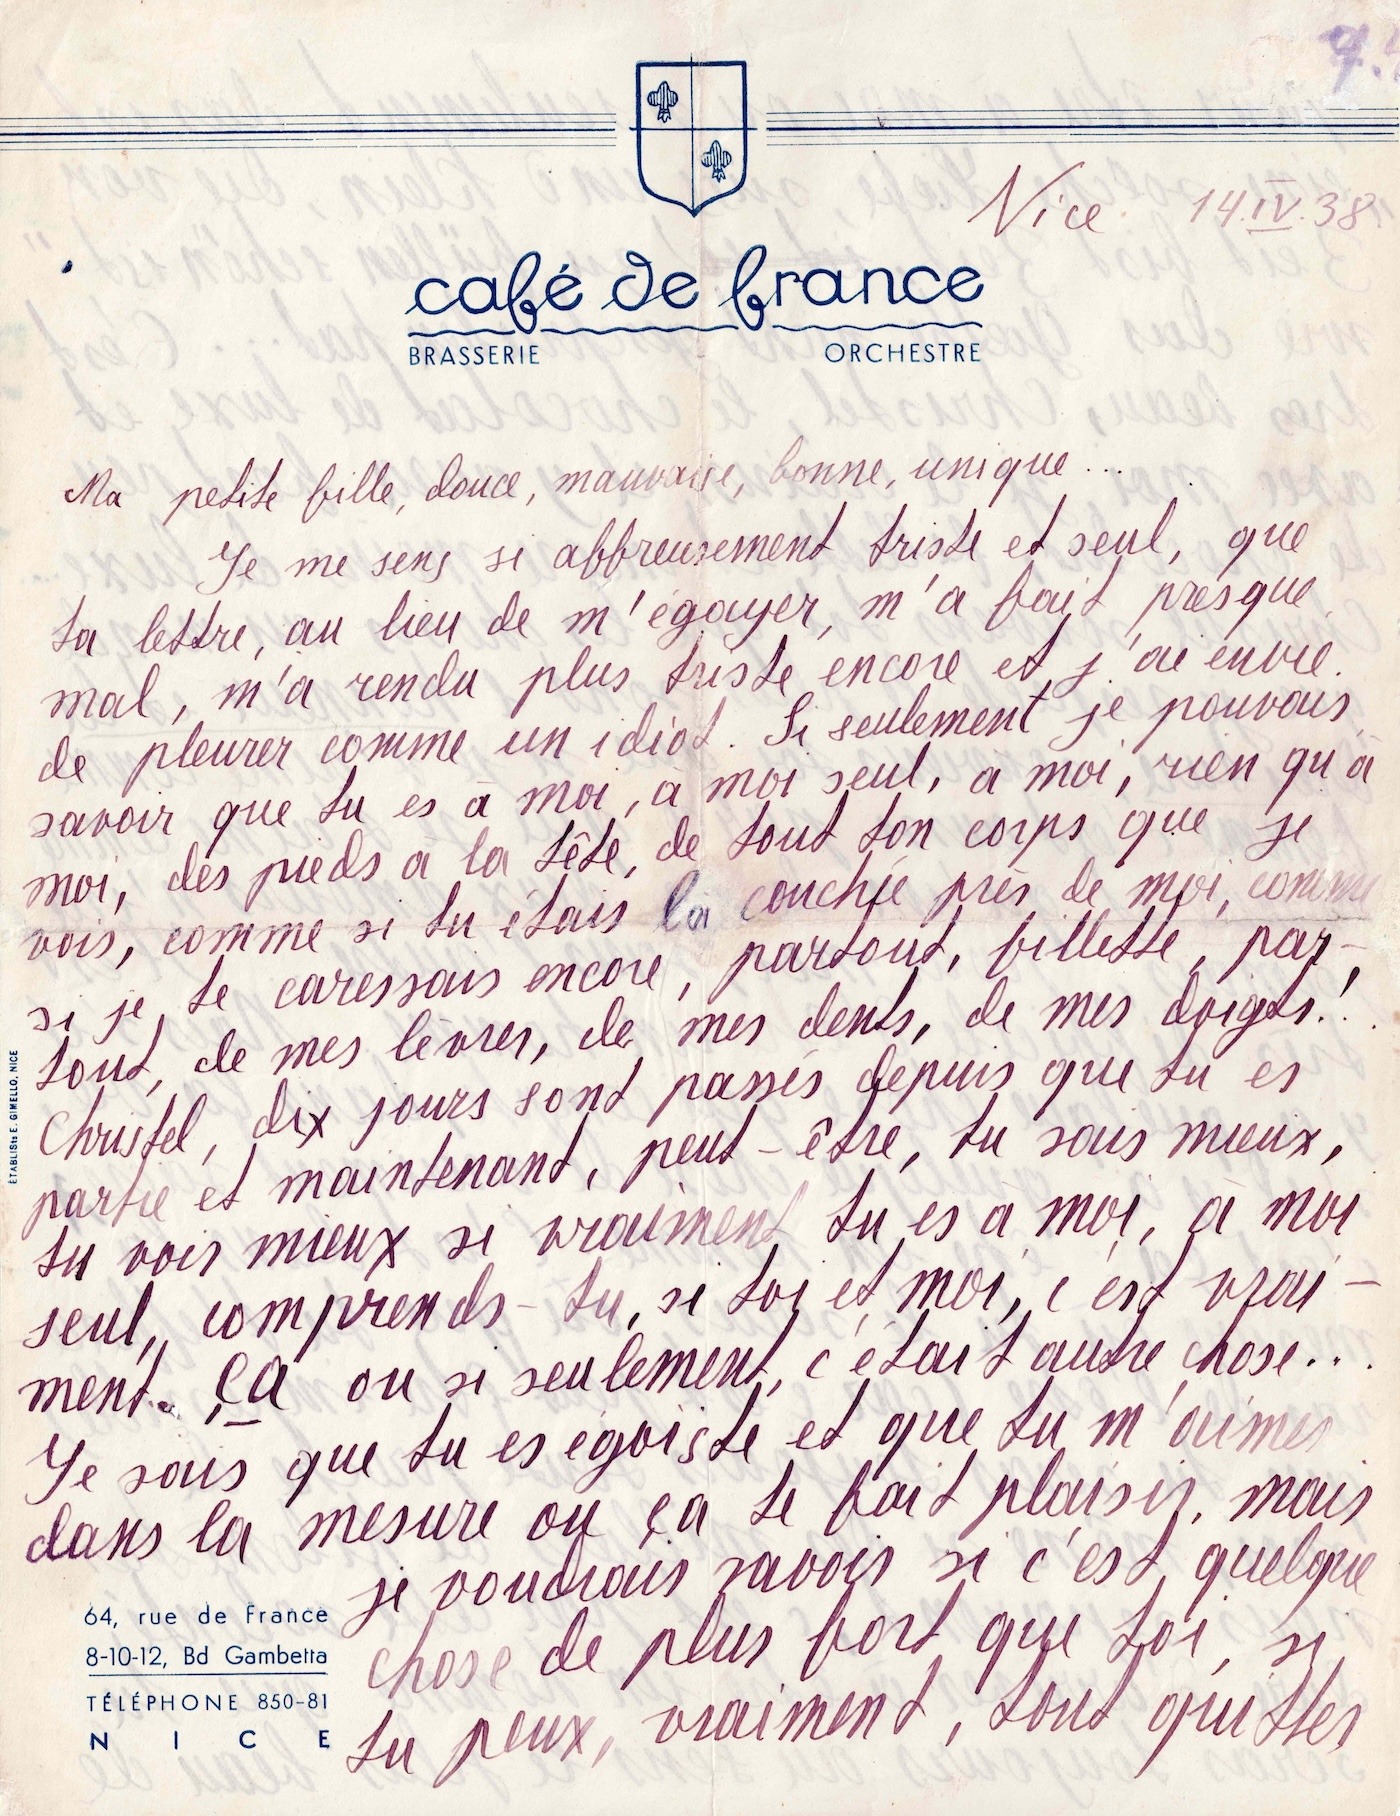 Nice 14.IV.38
café de france
BRASSERIE ORCHESTRE
Ma petite fille, douce, mauvaise, bonne, unique...
Je me sens si affreusement triste et seul, que
ta lettre, au lieu de m'égayer, m'a fait presque
mal, m'a rendu plus triste encore et j'ai envie
de pleurer comme un idiot. Si seulement je pouvais
savoir que tu es à moi, à moi seul, à moi, rien qu'à
moi, des pieds à la tête, de tout ton corps que je
vois, comme si tu étais là couchée près de moi, comme
si je te caressais encore, partout, fillette, par-
tout, de mes lèvres, de mes dents, de mes doigts!
Christel, dix jours sont passés depuis que tu es
partie et maintenant, peut-être, tu sais mieux,
tu vois mieux si vraiment tu es à moi, à moi
seul, comprends-tu, si toi et moi, c'est vrai-
ment ça ou si seulement, c'était autre chose...
Je sais que tu es égoiste et que tu m'aimes
dans la mesure ou ça te fait plaisir, mais
je voudrais savoir si c'est quelque
chose de plus fort que toi, si
tu peux, vraiment, tout quitter
ÉTABLISts E. GIMELLO, NICE
64, rue de France
8-10-12, Bd Gambetta
TÉLÉPHONE 850-81
NICE